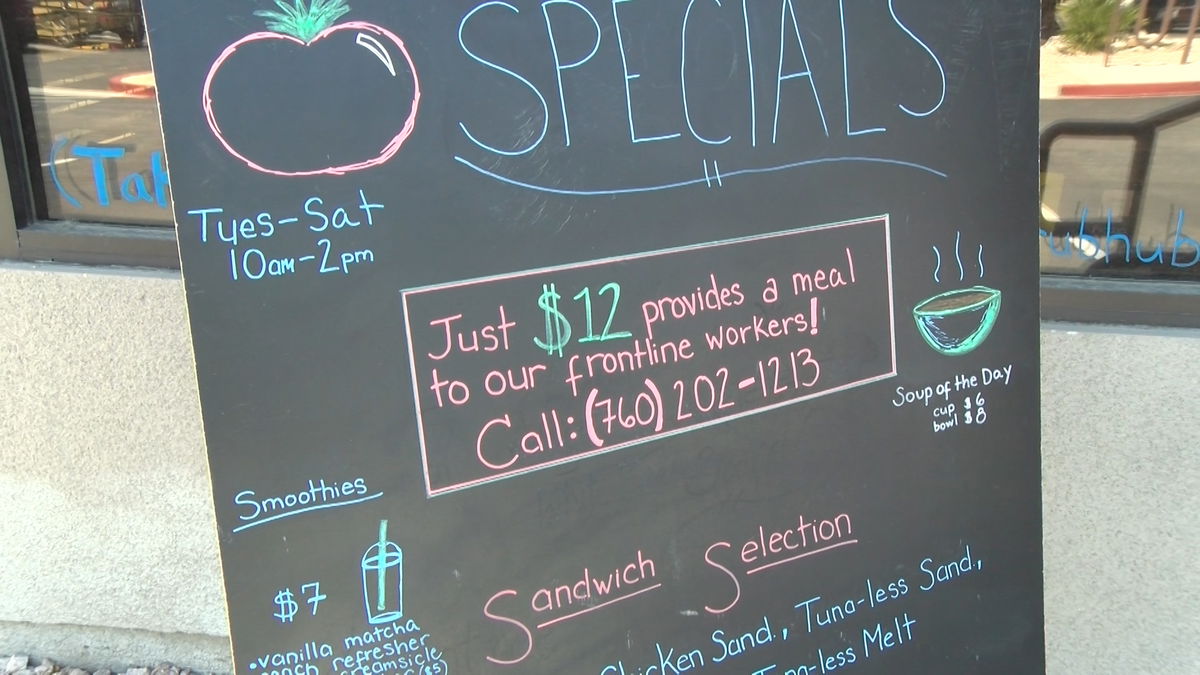 SPECIALS
(Tak
Tyes-Sat
10am-2pm
Just $12 provides a meal
to our frontline workers!
Call: (760) 202-1213
ubhub
Soup of the Day
cup $6
bowl $8
Smoothies
$7
•vanilla matcha
refresher
creamsicle
($5)
Sandwich Selection
Chicken Sand., Tuna-less Sand.,
Tuna-less Melt